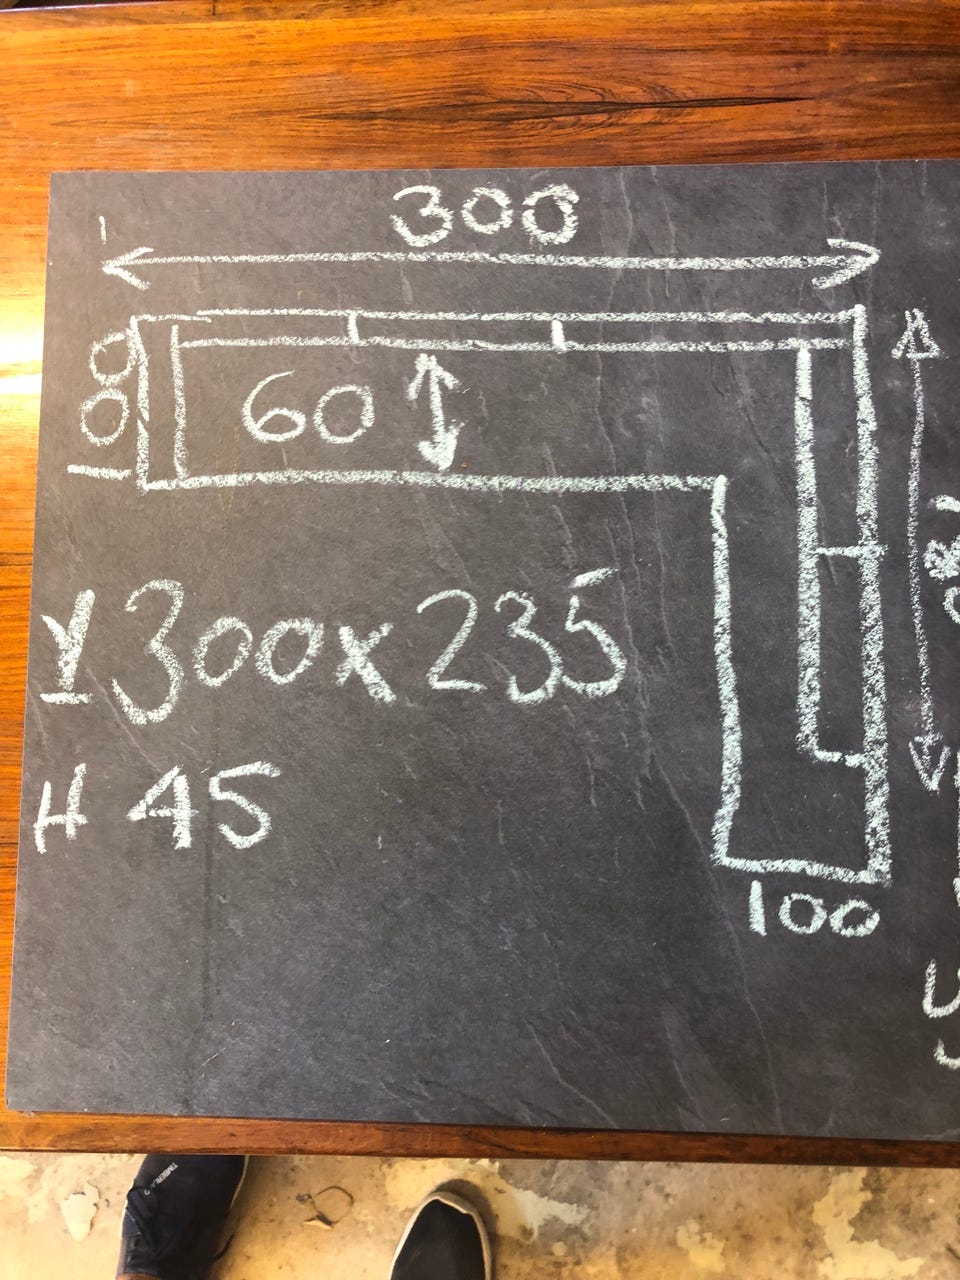 300
100
60
300x235
H 45
100